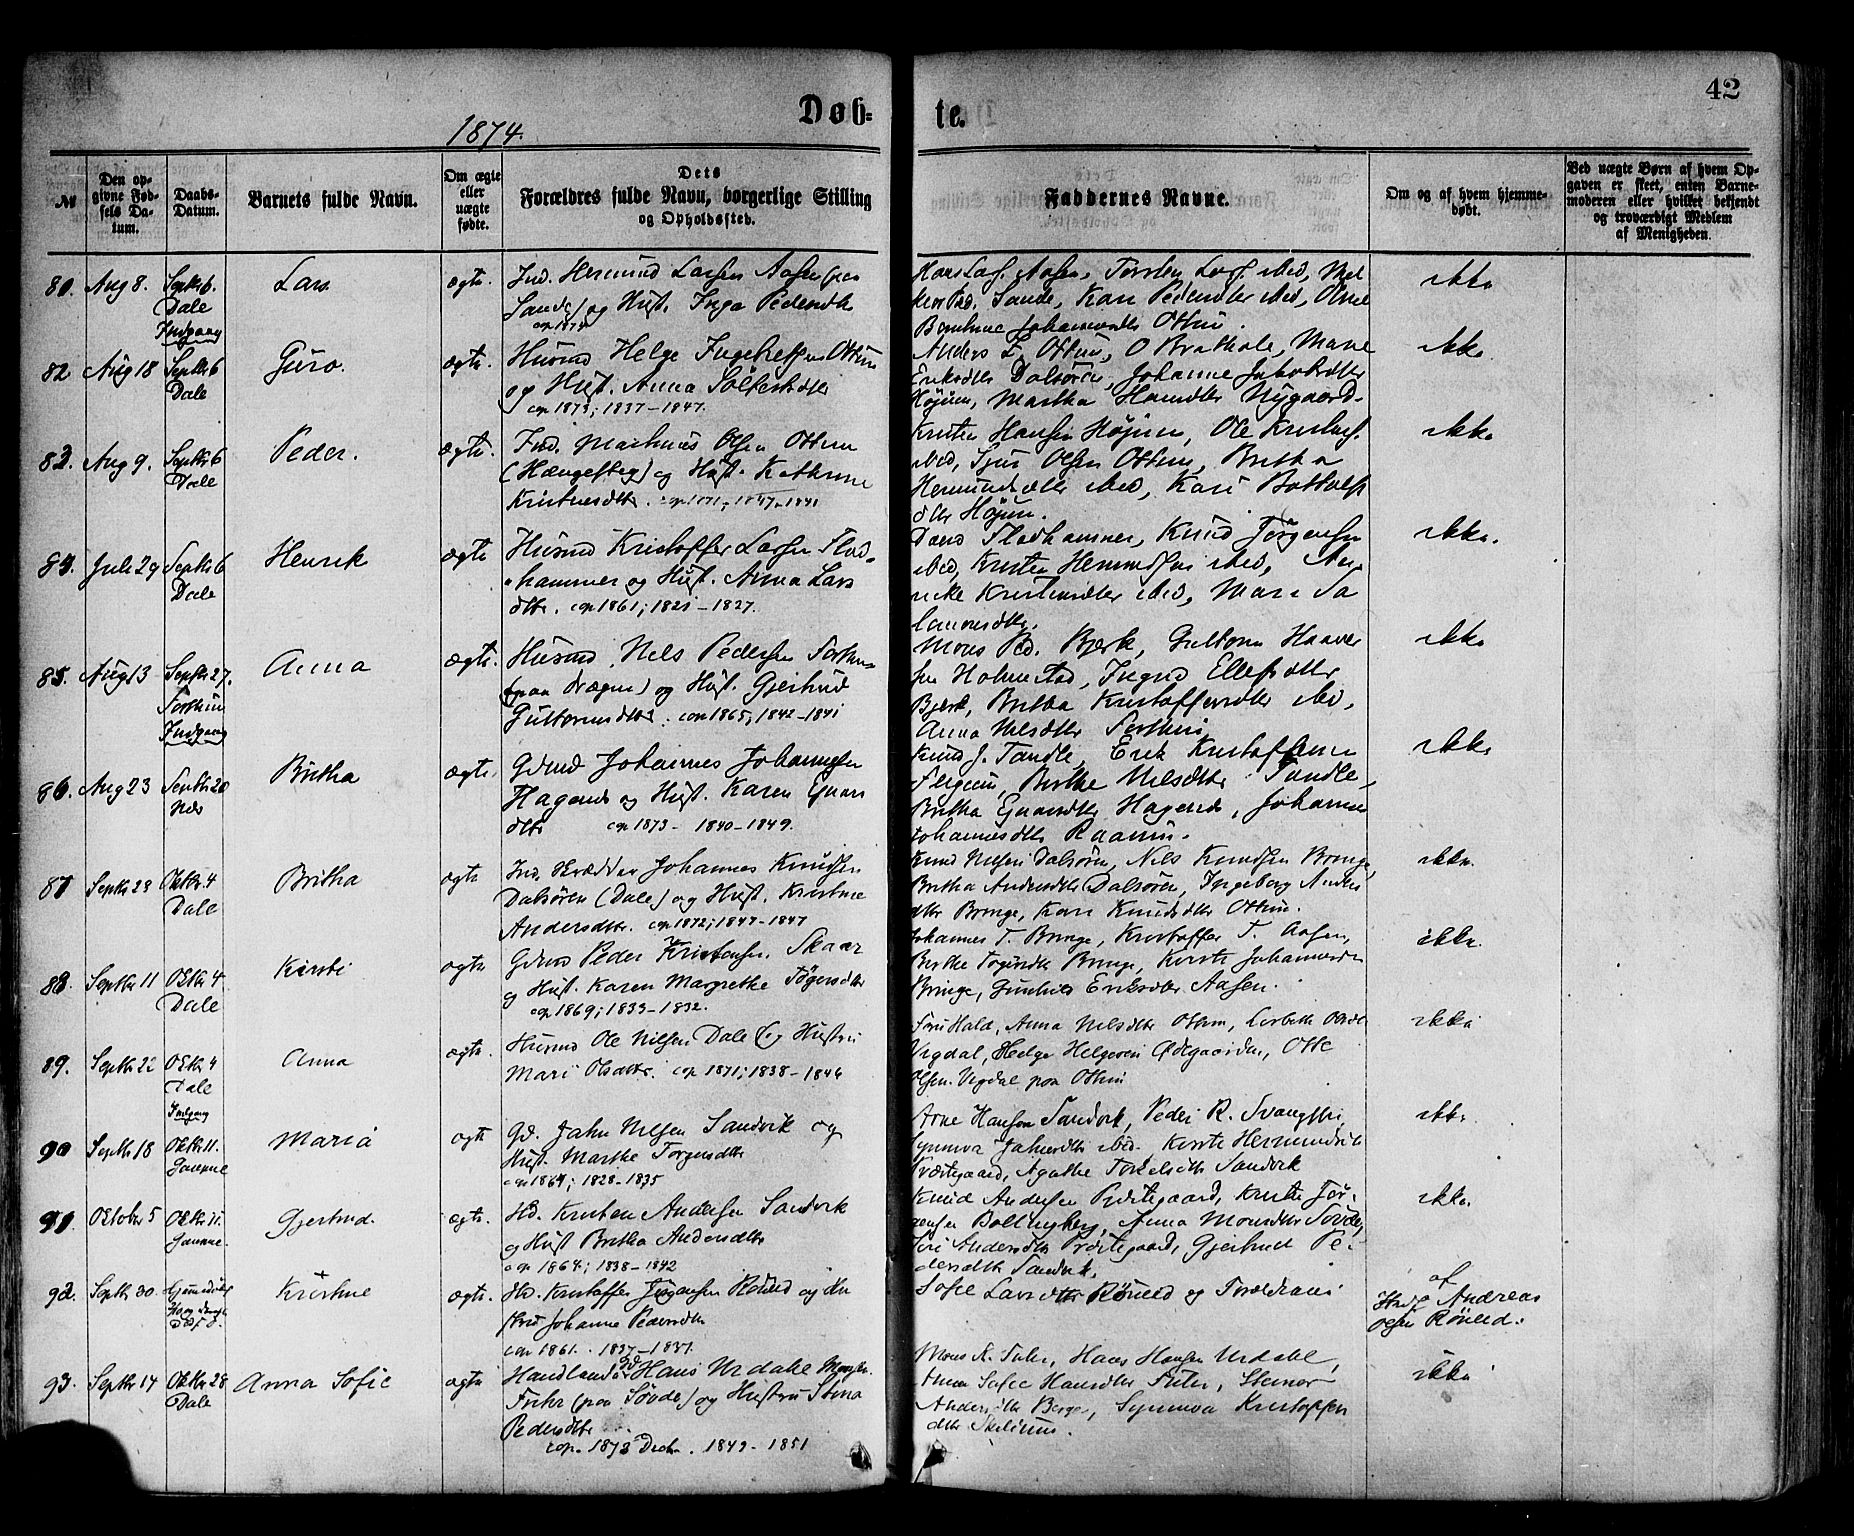 42
1874.
Døb-
te.
№
Den op-
givne Fød-
sels Da-
tum.
Daabs-
Datum.
Barnets fulde Navn.
Om ægte
eller
uægte
fødte.
Dets
Forældres fulde Navn, borgerlige Stilling
og Opholdssted.
Faddernes Navne.
Om og af hvem hjemme-
døbt.
Ved uægte Børn af hvem Op-
gaven er skeet, enten Barne-
moderen eller hvilket bekjendt
og troværdigt Medlem
af Menigheden.
81. Aug 8. Septbr 6. Lars ægte. Ind. Hermund Larsen Aasen (paa
Dale Sande) og Hust. Inga Pedersdtr
Indgang cop 1874
Hans Lars. Aasen, Torsten Lars. ibid,
Ped. Sande, Kari Pedersdtr ibid,
Johannesdtr Ottum.
ikke
82 Aug 18 Septbr 6 Guro. ægte. Husmd Helge Ingebretsen Ottum
Dale og Hust. Anna Solfestsdtr
cop 1873; 1837-1847.
Anders L. Ottum, O Brathole,
Eriksdtr Dalsøren, Johanne Jakobsdtr
Højum, Martha Hansdtr Nygaard.
ikke
83 Aug 9. Septbr 6 Peder. ægte. Ind. Mathias Olsen Ottum
Dale (Hængesteg) og Hust. Kathrine
Kristensdtr. cop 1871; 1847-1841
Kristen Hansen Højum, Ole Kristens.
ibid, Sjur Olsen Ottum, Britha
Hermundsdtr ibid, Kari Bottolfs
dtr Højum.
ikke
84. Juli 29 Septbr 6 Henrik ægte Husmd Kristoffer Larsen Flad-
Dale hammer og Hust. Anna Lars
dtr. cop 1861; 1821-1827.
David Fladhammer, Knud Jørgensen
ibid, Kristen Hermundsen ibid, An-
neke Kristensdtr ibid, Mari Sa
lamonsdtr.
ikke.
85. Aug 13 Septbr 27. Anna ægte. Husmd Nels Pedersen Forthun
Forthun (paa Drægni) og Hust. Gjertrud
Indgang Guttormsdtr. cop 1865; 1842-1841
Mons Ped. Bjørk, Guttorm Haavar
sen Holmestad, Ingrid Ellefsdtr
Bjørk, Britha Kristoffersdtr ibd,
Anna Nelsdtr Forthun.
ikke
86. Aug 23 Septbr 20 Britha ægte. Gdmd Johannes Johannessen
Nes Hagenes og Hust. Karen Ejnars
dtr cop 1873- 1840-1849.
Knud J. Tandle, Erik Kristoffersen
Flugum, Berthe Nelsdtr Tandle,
Britha Ejnarsdtr Hagenes, Johanne
Johannesdtr Raaum.
ikke
87 Septbr 23 Oktbr. 4 Britha ægte Ind. Skrædder Johannes Knudsen
Dale Dalsøren (Dale) og Hust. Kristine
Andersdtr. cop 1872; 1847-1847
Knud Nelsen Dalsøren, Nels Knudsen Bringe,
Britha Andersdtr Dalsøren, Ingeborg Anders
dtr Bringe, Kari Knudsdtr Ottum.
ikke.
88. Septbr 11 Oktbr 4 Kirsti ægte Gdmd Peder Kristensen Skaar
Dale og Hust. Karen Margrethe Tøgersdtr
cop 1869; 1833-1832.
Johannes T. Bringe, Kristoffer T. Aasen,
Berthe Tøgersdtr Bringe, Kirsti Johannesdtr
Bringe, Gunhild Eriksdtr Aasen.
ikke.
89. Septbr 22 Oktbr 4 Anna ægte. Husmd Ole Nilsen Dale og Hustru
Dale Mari Olsdtr. cop 1871; 1838-1846
Indgang
Hald, Anna Nelsdtr Ottum, Lisbeth Olsdtr
Vigdal, Helge Helgesen Ødegaarden, Otte
Olsen Vigdal paa Ottum
ikke
90 Septbr 18 Oktbr 11. Maria ægte Gd. Jahn Nelsen Sandvik og
Gaupne Hust. Marthe Torgersdtr
cop 1864; 1828-1835
Arne Hansen Sandvik, Peder R.
Synnva Jahnsdtr ibid. Kirsti Hermundsdtr
Prestegaard, Agathe Torkelsdtr Sandvik
ikke.
91. Oktober 5 Oktbr 11. Gjertrud. ægte. Hd. Kristen Andersen Sandvik
Gaupne. og Hust Britha Andersdtr
cop 1864; 1838-1842
Knud Andersen Prestegaard, Kirsti Jør-
gensen Bollingberg, Anna Monsdtr
Siri Andersdtr Prestegaard, Gjertrud Pe-
dersdtr Sandvik.
ikke.
92. Septbr 30. Kristine ægte. Hd. Kristoffer Jørgensen Røneid og Hu
stru Johanne Pedersdtr
cop 1861. 1837-1837.
Sofie Larsdtr Røneid og Forældrene
af
Andreas
Olsen Røneid.
93. Septbr 14 Oktbr 28 Anna Sofie ægte Handlende Gd Hans Urdahl Monsen
Dale Fuhr (paa Søvde) og Hustru Stina
Pedersdtr
cop. 1873 Decbr. 1849-1851
Mons K. Fuhr, Hans Hansen Urdahl,
Anna Sofie Hansdtr Fuhr, Steinar
Andersdtr Berge, Synneva Kristoffers
dtr
ikke